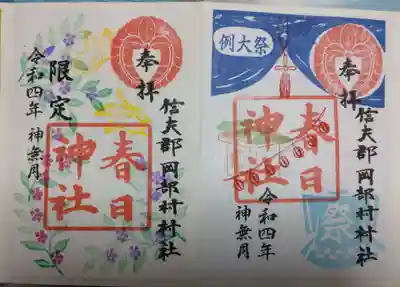 奉拝
信夫郡岡部村村社
春日
神社
限定
令和四年 神無月
例大祭
奉拝
信夫郡岡部村村社
春日
神社
令和四年
神無月
祭